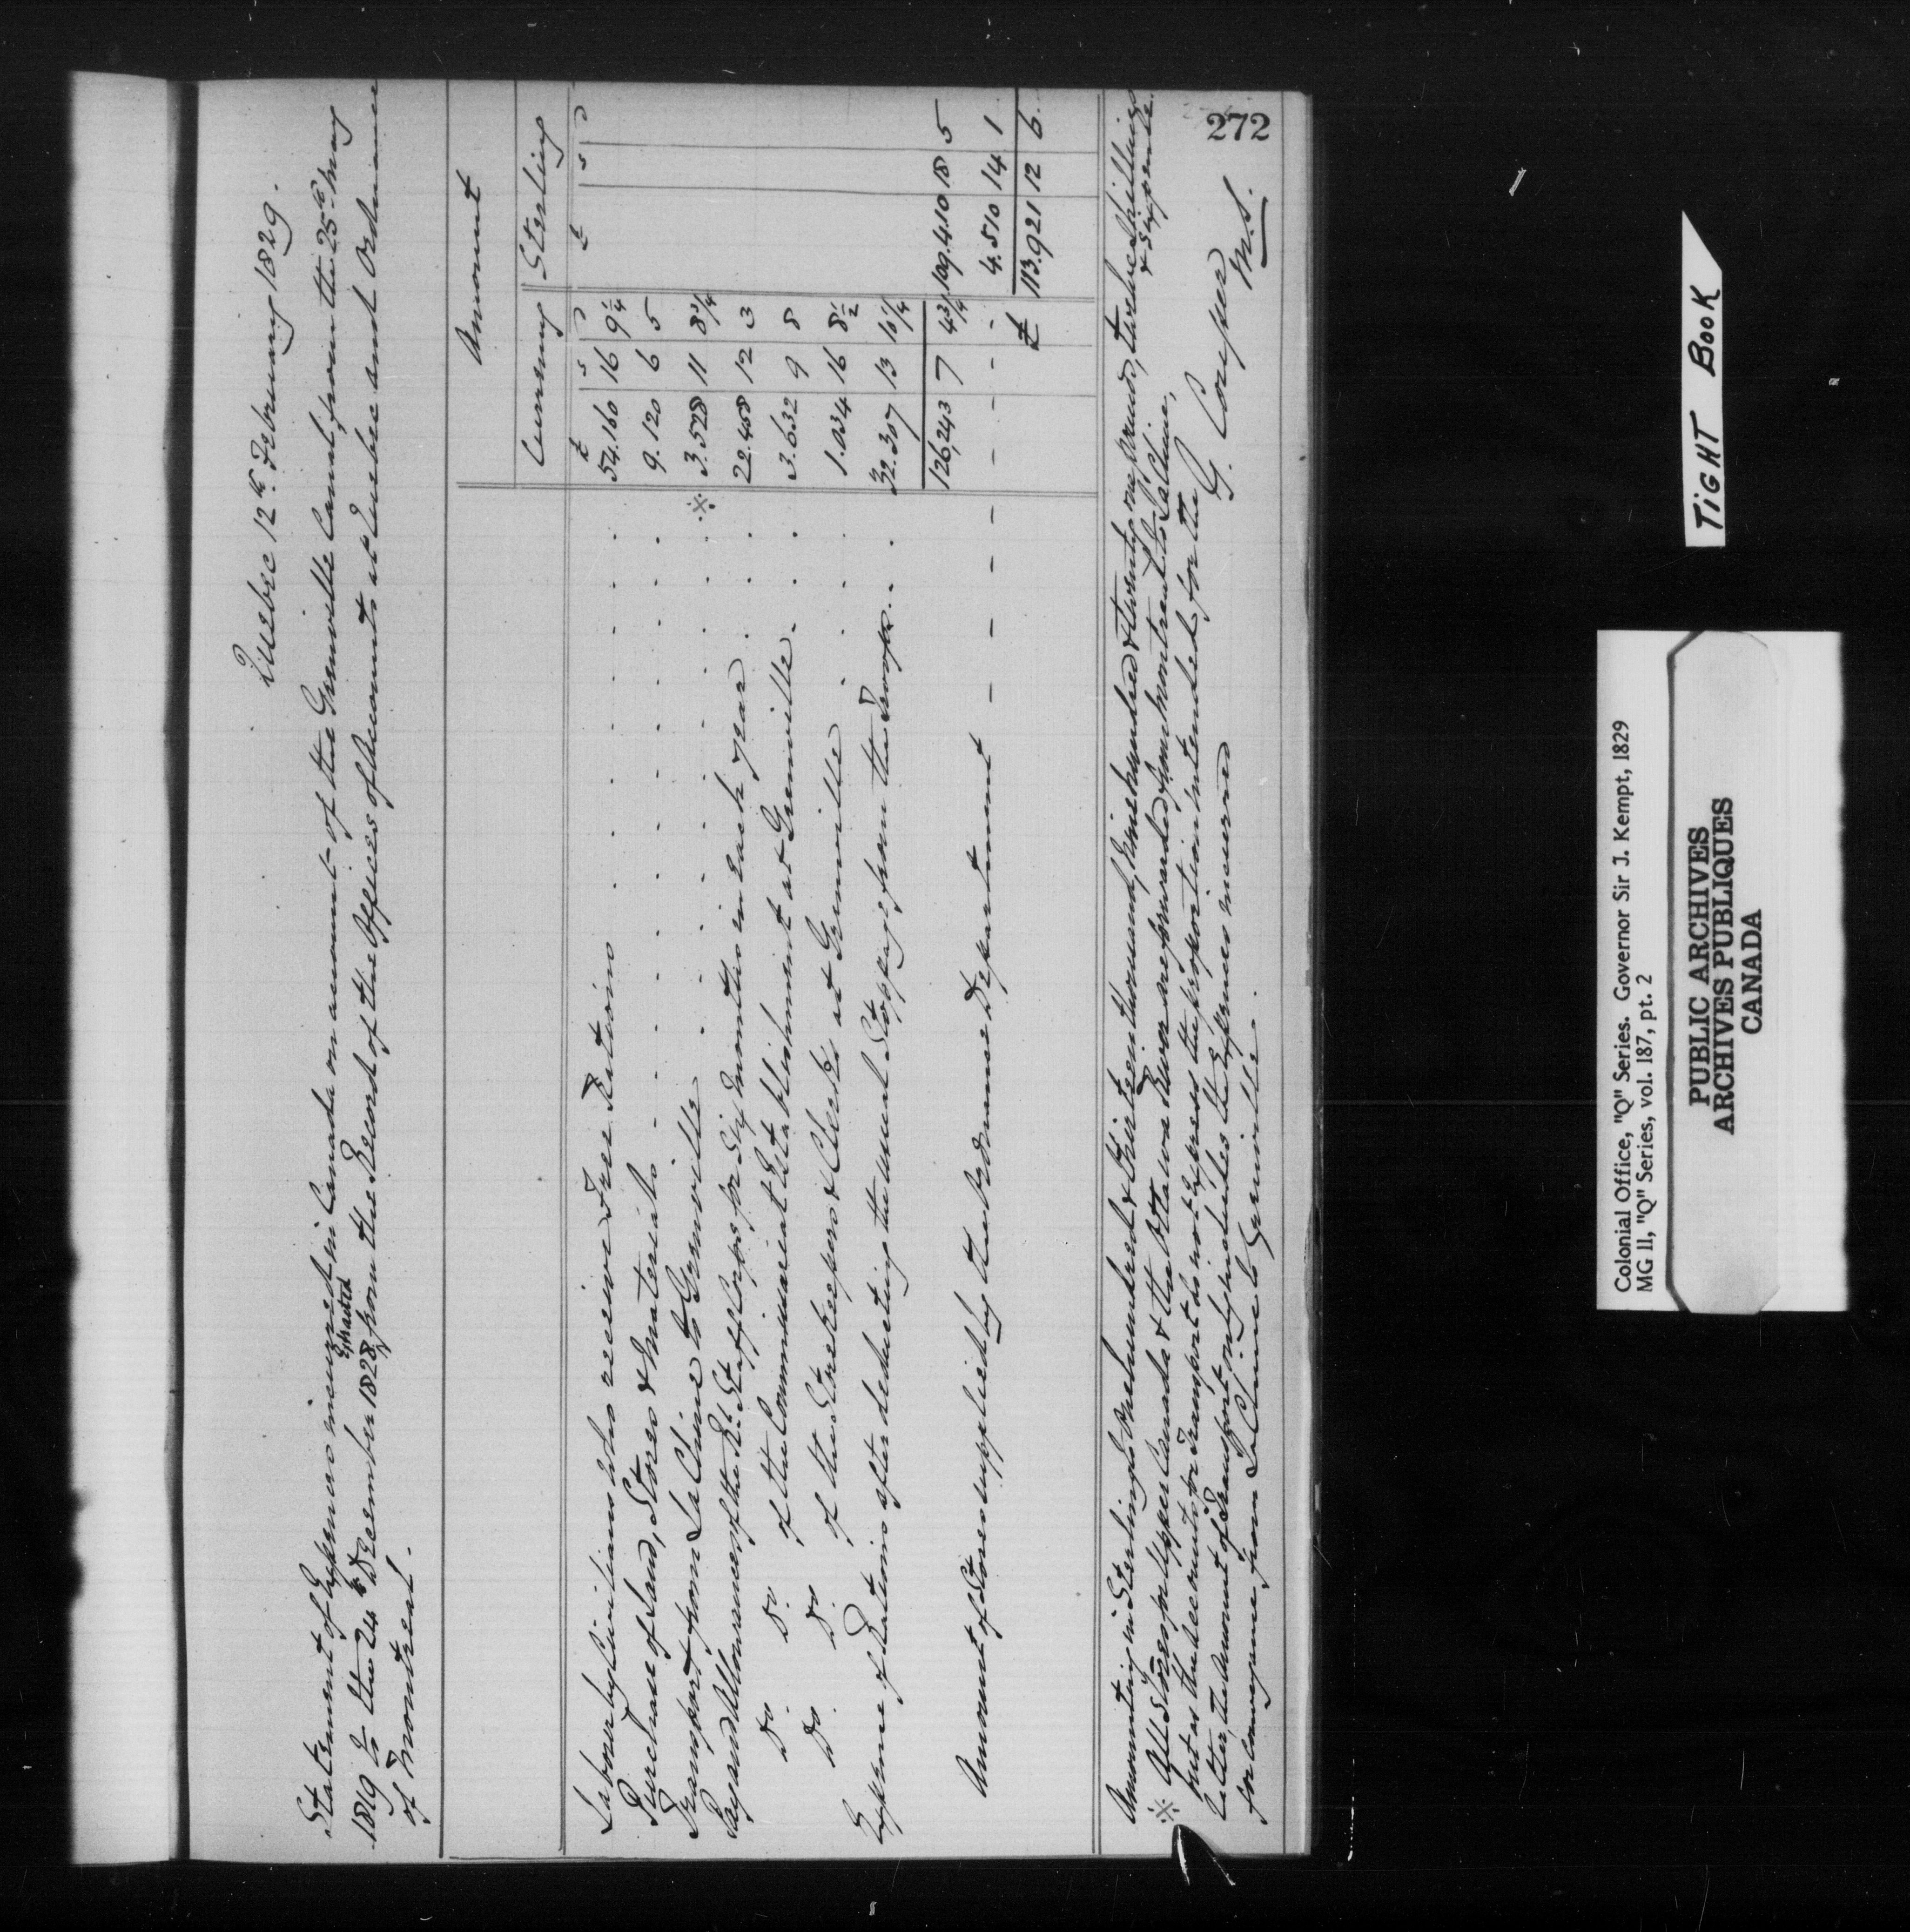 Quebec 12th February 1829.
Statement of Expenses incurred in Canada on account of the Grenville Canal from the 25th May
1819 to the 24th December 1828, extracted from the Record of the Offices of Accounts at Quebec and Ordnance
of Montreal.
Amount
Currency Sterling
£ s D £ s D
Labour by Civilians who receive Free Rations 54.160 16 9 1/4
Purchase of Land, Stores & Materials 9.120 6 5
Transport from LaChine to Grenville ※ 3.528 11 8 3/4
Pay and Allowances of the Rl. Staff Corps for Six Months in each year 22.458 12 3
Do. Do. of the Commissariat Establishment at Grenville 3.632 9 8
Do. Do. of the Storekeepers & Clerks at Grenville 1.034 16 8 1/2
Expense of Rations after deducting the usual Stoppages from the Troops 32.307 13 10 1/4
126,243 7 4 3/4 109.410 18 5
Amount of Stores supplied by the Ordnance Department 4.510 14 1
£ 113.921 12 6.
Amounting in Sterling to One hundred & thirteen thousand, Nine hundred & twenty one pounds, twelve shillings
& sixpence.
※ All Stores for Upper Canada & the Ottawa River are forwarded from Montreal to LaChine,
but as the accounts for Transport do not express the proportion intended for the
latter, the Amount of Transport only includes the Expenses incurred
for Conveyance from LaChine to Grenville.
G. Couper
M.S.
272
TIGHT BOOK
Colonial Office, "Q" Series. Governor Sir J. Kempt, 1829
MG 11, "Q" Series, vol. 187, pt. 2
PUBLIC ARCHIVES
ARCHIVES PUBLIQUES
CANADA